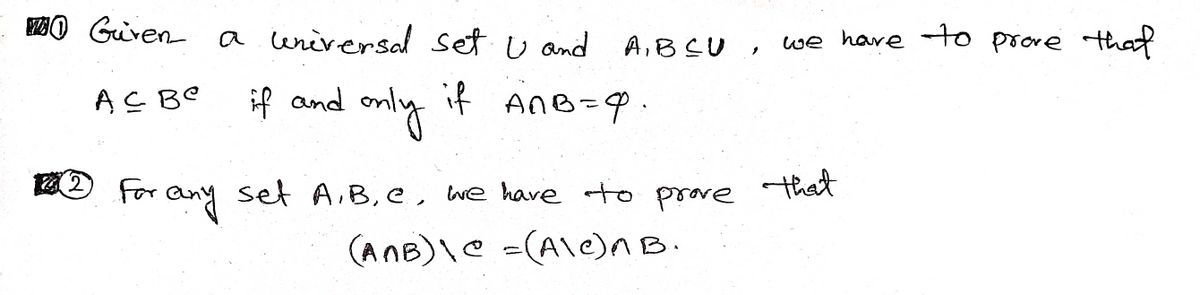 ① Given a universal set U and A,B ⊆ U, we have to prove that
A ⊆ Bᶜ if and only if A∩B=φ.
② For any set A,B,C, we have to prove that
(A∩B)\C =(A\C)∩B.